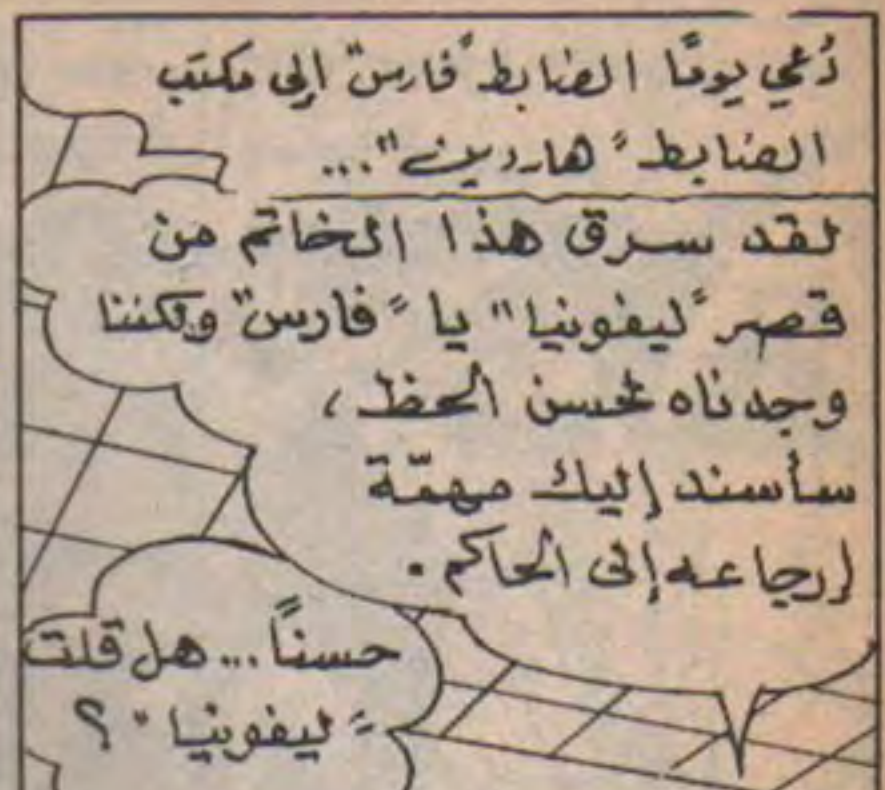 دُعي يومًا الضابط "فارس" إلى مكتب
الضابط "هاردين"...
لقد سرق هذا الخاتم من
قصر "ليفونيا" يا "فارس" ولكننا
وجدناه لحسن الحظ،
سأسند إليك مهمّة
إرجاعه إلى الحاكم.
حسنًا... هل قلت
"ليفونيا"؟